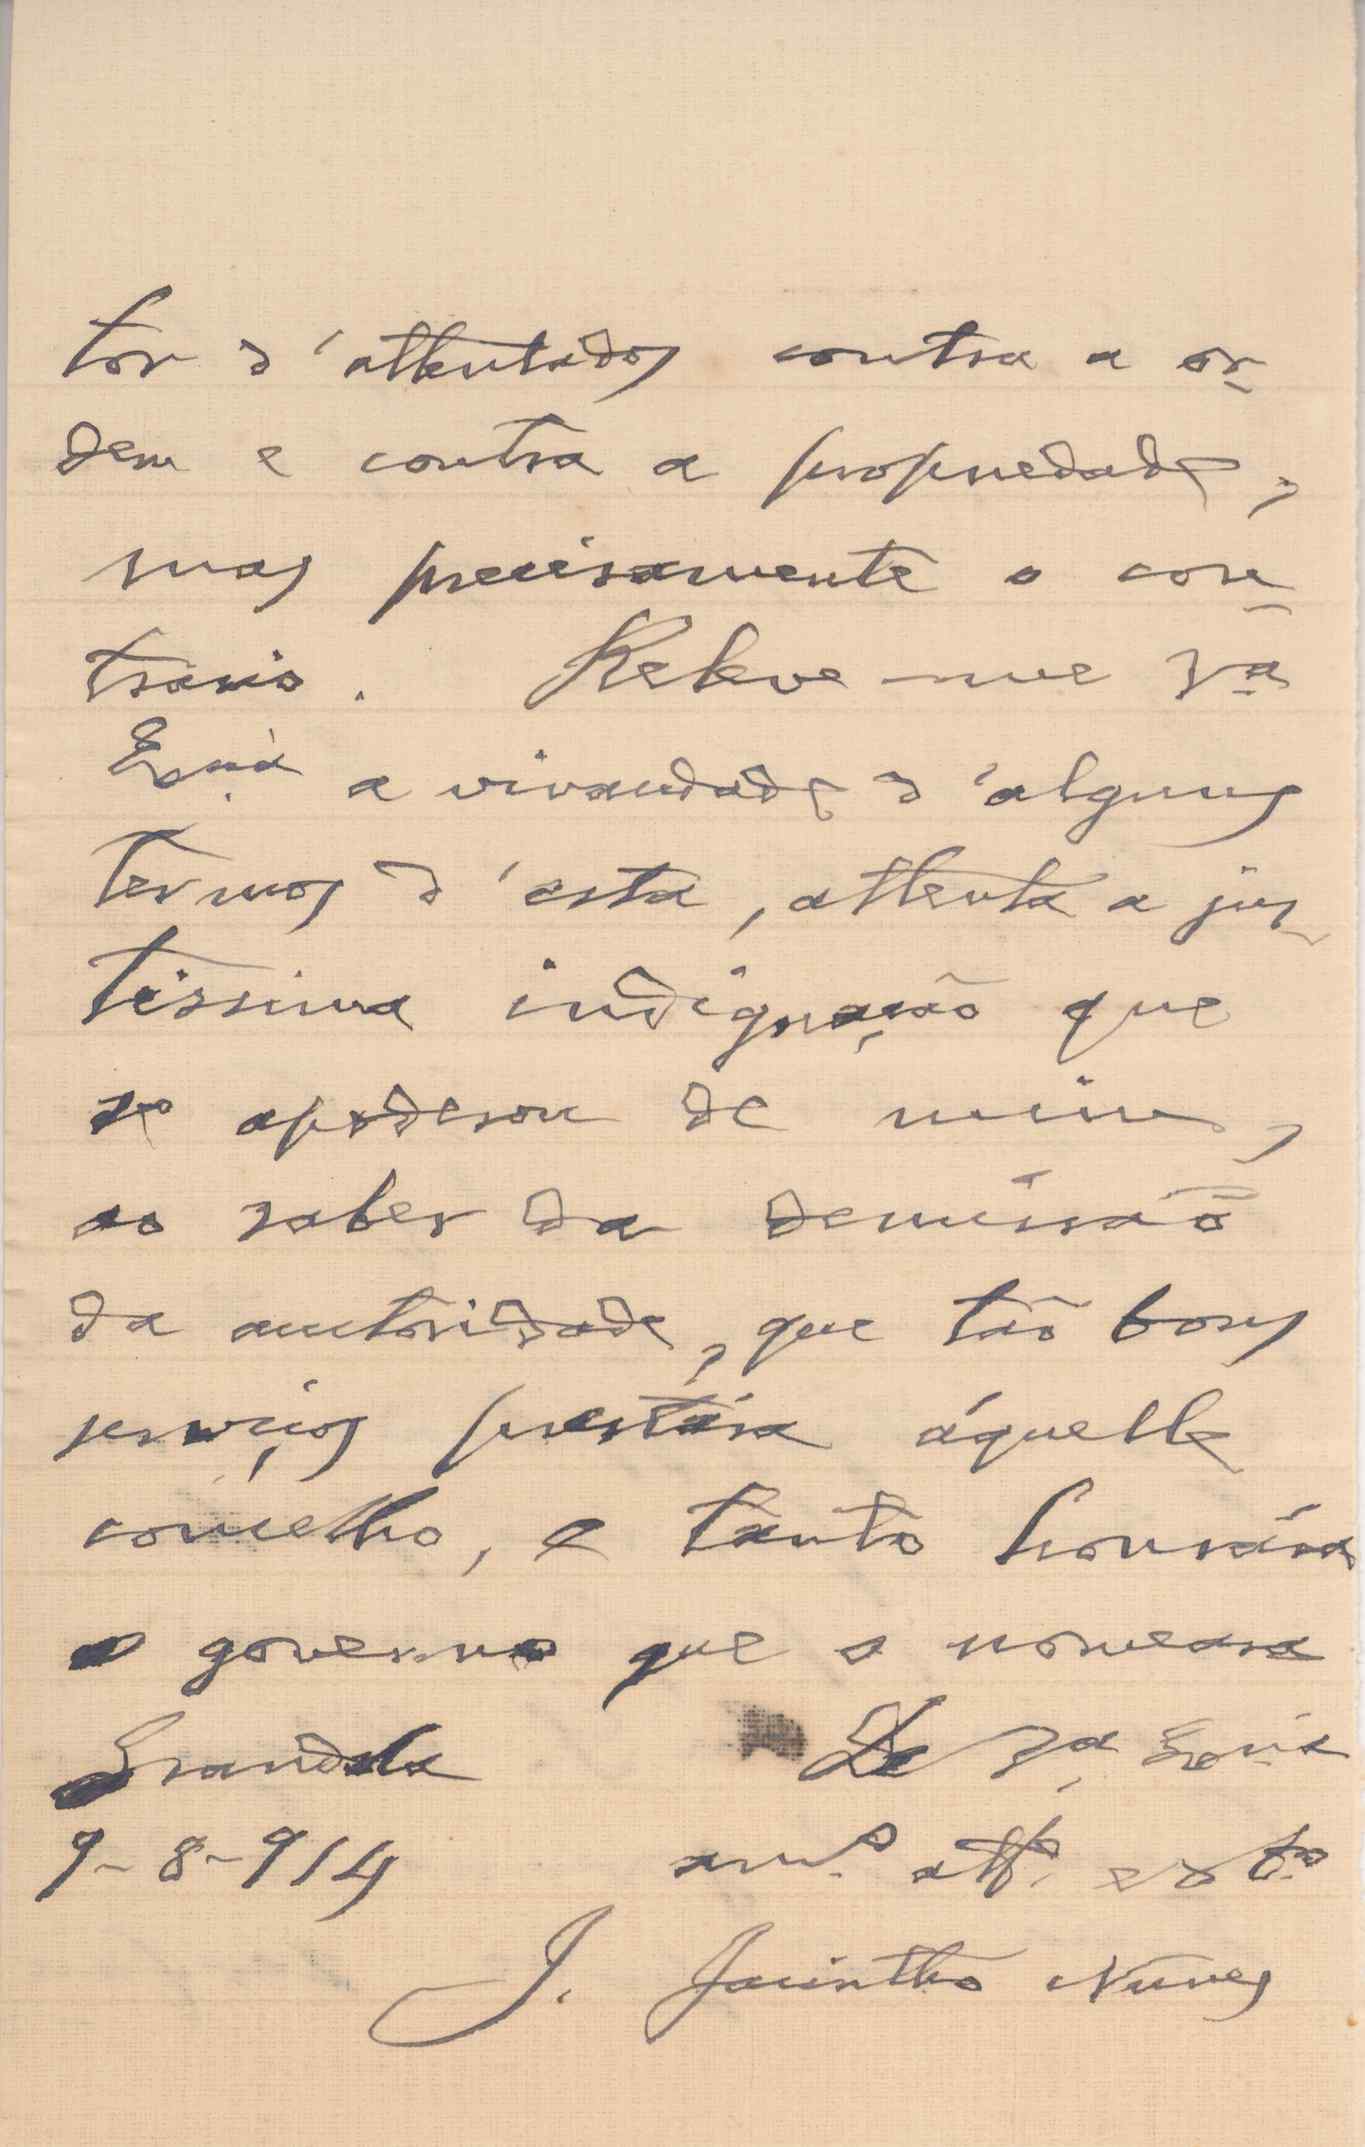 tor d'attentados contra a or-
dem e contra a propriedade,
mas precisamente o con-
trario. Releve-me Vª
Exciª a vivacidade d'alguns
termos d'esta, attenta a jus-
tissima indignação que
se apoderou de mim,
ao saber da demissão
da auctoridade, que tão bons
serviços prestára áquelle
concelho, e tanto honrára
o governo que o nomeara
Grandola De Vª Exciª
9-8-914 amº. attº. e obº.
J. Jacintho Nunes